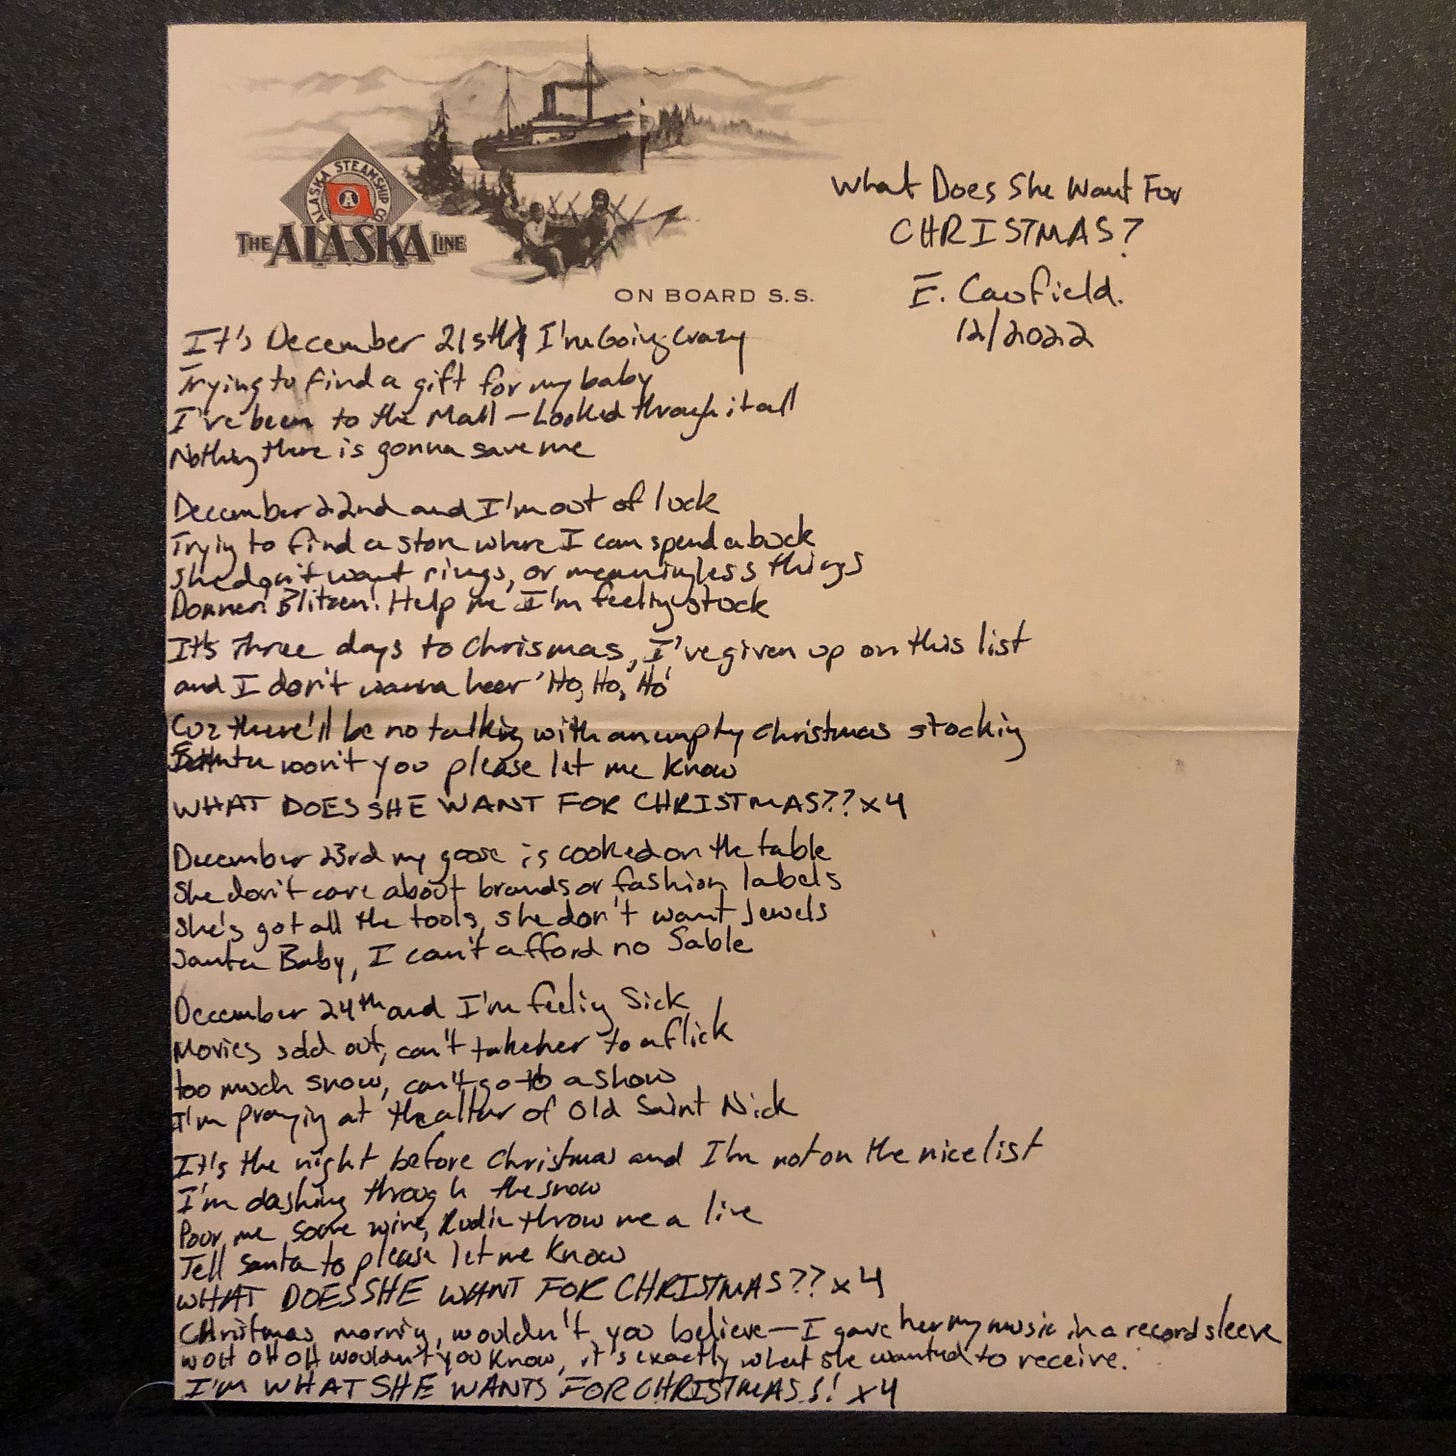 ALASKA STEAMSHIP CO.
A
THE ALASKA LINE
ON BOARD S.S.
What Does She Want For
CHRISTMAS?
E. Cawfield.
12/2022
It's December 21st I'm Going Crazy
Trying to find a gift for my baby
I've been to the Mall – Looked through it all
Nothing there is gonna save me
December 22nd and I'm out of luck
Trying to find a store where I can spend a buck
She don't want rings, or meaningless things
Donner! Blitzen! Help me I'm feeling stuck
It's Three days to Chrismas, I've given up on this list
and I don't wanna hear 'Ho, Ho, Ho'
Cuz there'll be no talking with an empty christmas stocking
Santa won't you please let me know
WHAT DOES SHE WANT FOR CHRISTMAS?? x4
December 23rd my goose is cooked on the table
She don't care about brands or fashion labels
She's got all the tools, she don't want Jewels
Santa Baby, I can't afford no Sable
December 24th and I'm feeling Sick
Movies sold out, can't take her to a flick
too much snow, can't go to a show
I'm praying at the altar of Old Saint Nick
It's the night before Christmas and I'm not on the nice list
I'm dashing through the snow
Pour me some wine, Rudie throw me a line
Tell Santa to please let me know
WHAT DOES SHE WANT FOR CHRISTMAS?? x4
Christmas morning, wouldn't you believe – I gave her my music in a record sleeve
WOH OH OH wouldn't you know, it's exactly what she wanted to receive.
I'M WHAT SHE WANTS FOR CHRISTMAS!! x4